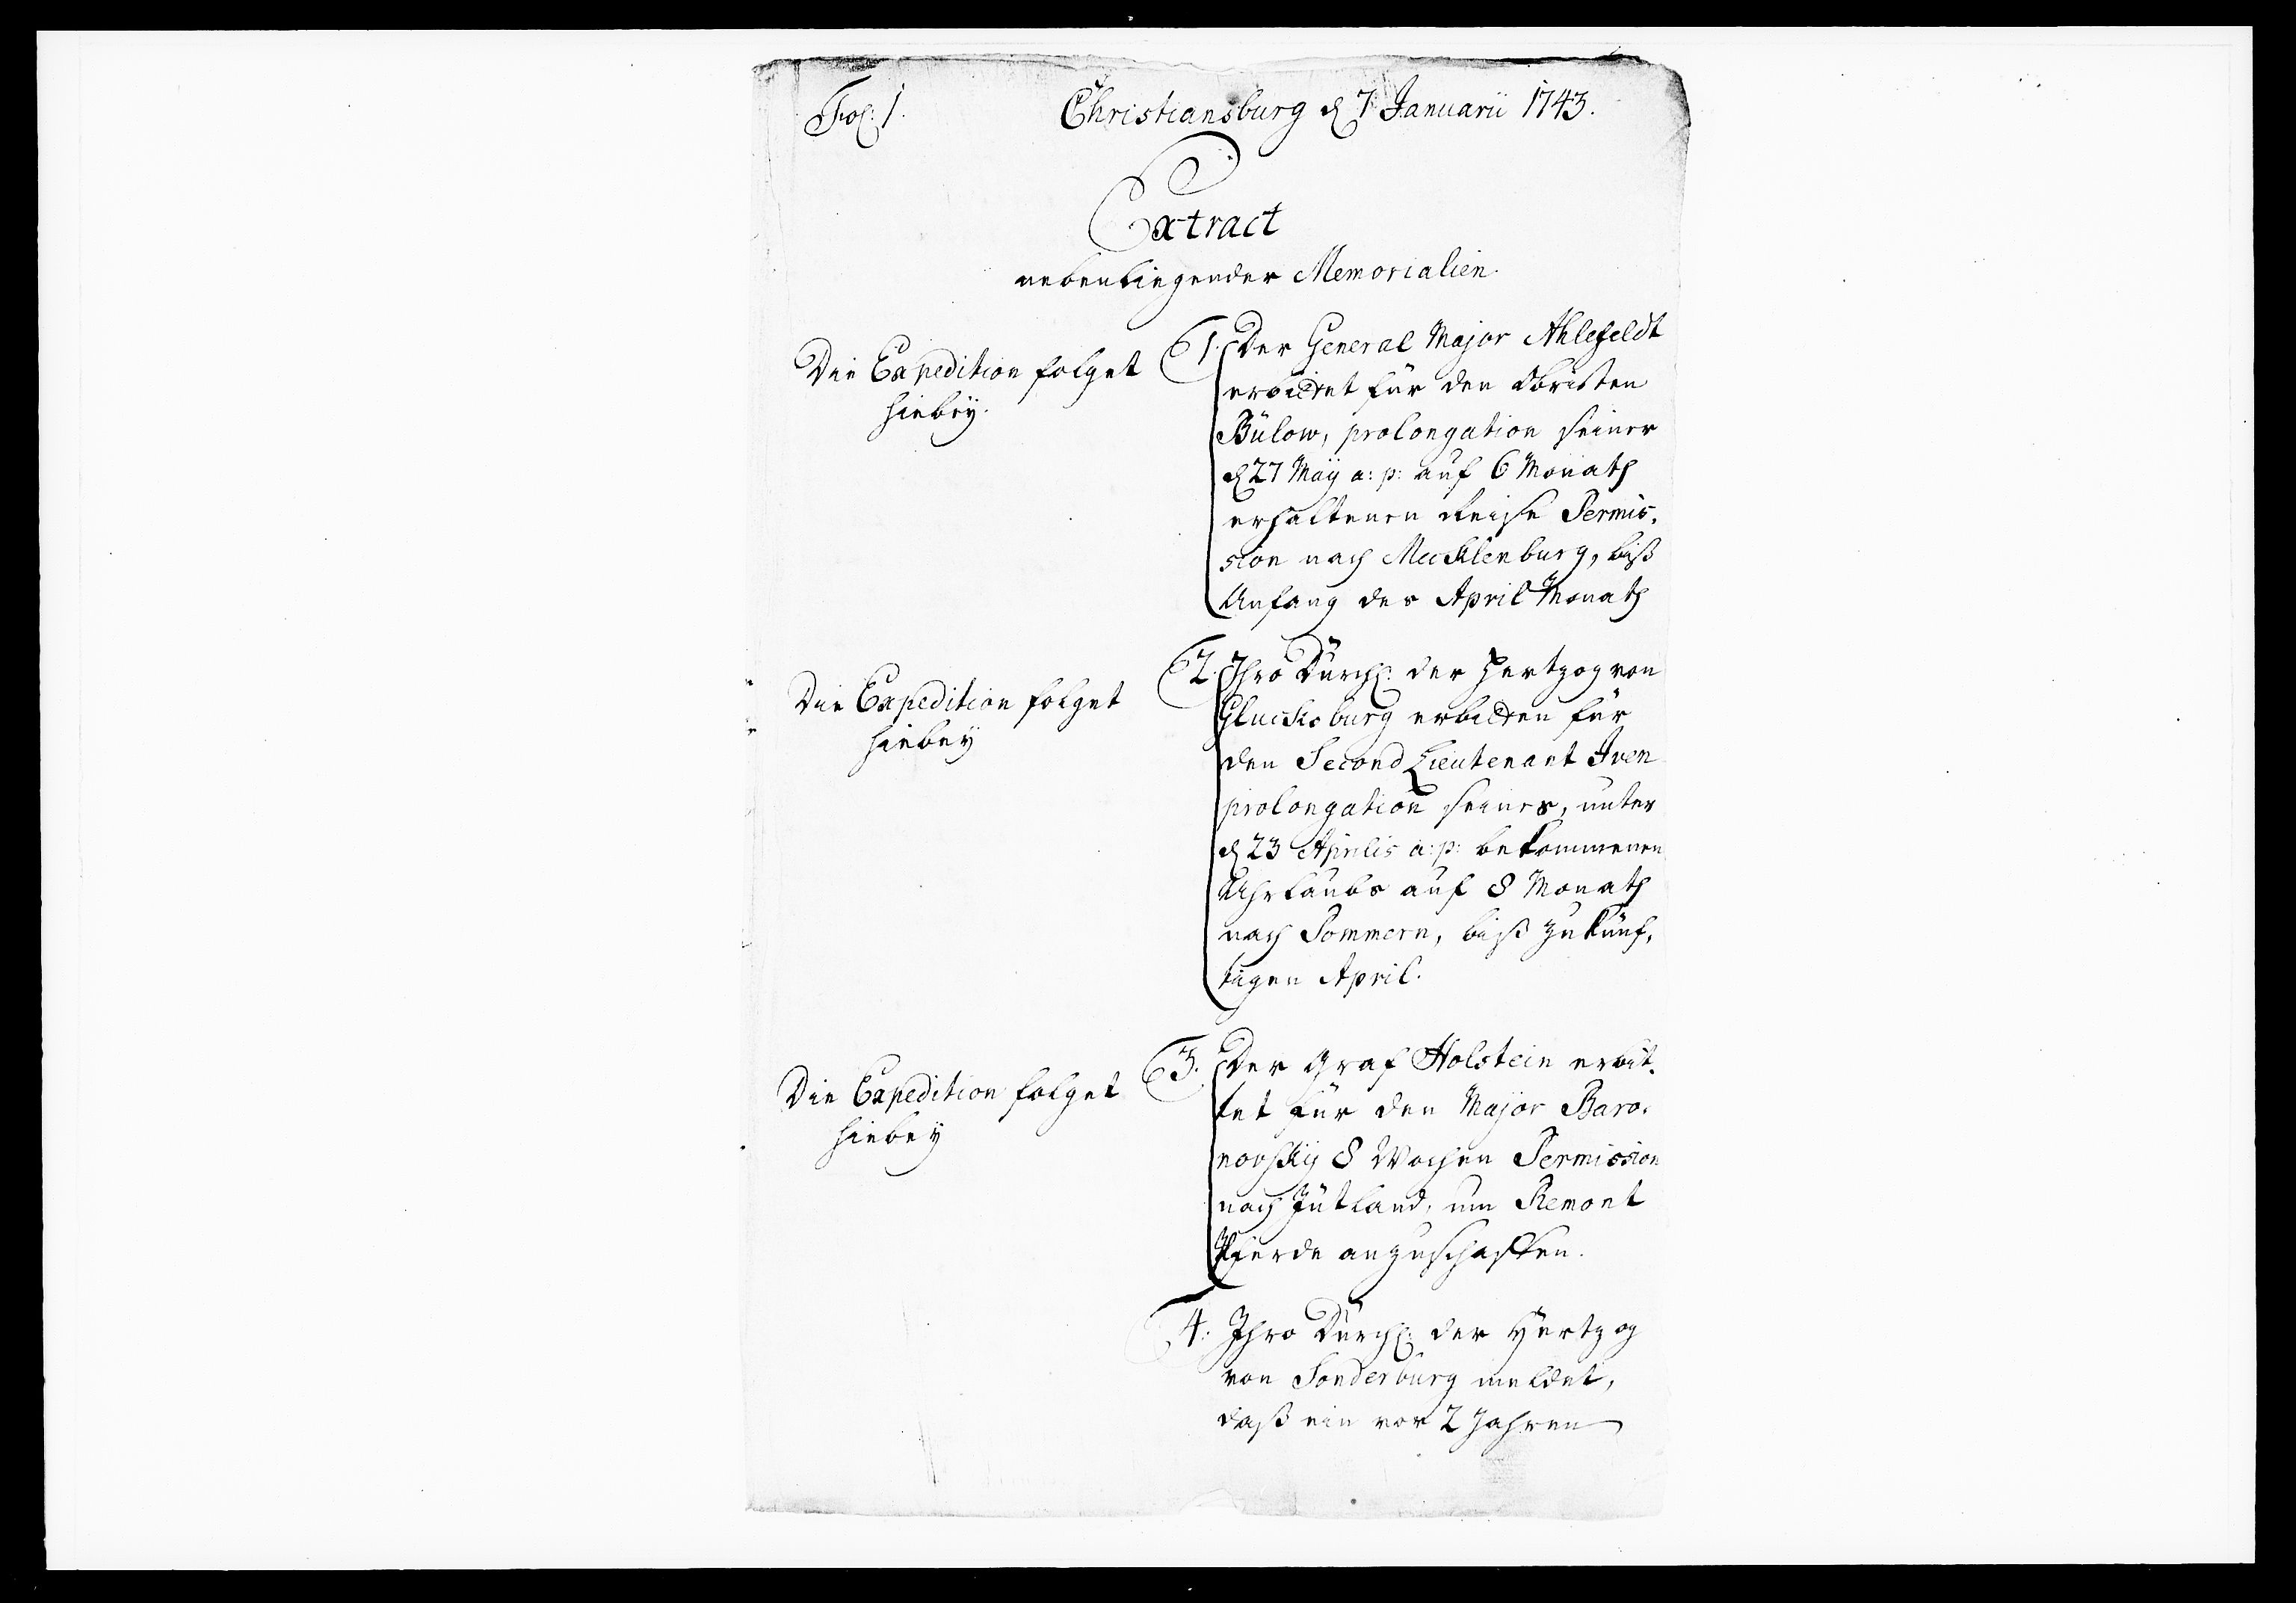 Fol: 1.
Christiansburg d 7 Januarii 1743.
Extract
nebenliegender Memorialien.
Die Expedition folget
hiebey.
1. Der General Major Ahlefeldt
erbittet für den Obristen
Bülow, prolongation seiner
d 27 May a: p: auf 6 Monath
erhaltenen Reise Permis,
sion nach Mecklenburg, biß
Anfang des April Monath
Die Expedition folget
hiebey
2. Ihro Durchl: der Hertzog von
Glucksburg erbitten für
den Second Lieutenant Iven
prolongation seines, unter
d 23 Aprilis a: p: bekommenen
Uhrlaubs auf 8 Monath
nach Pommern, biß zukünf,
tigen April.
Die Expedition folget
hiebey
3. Der Graf Holstein erbit,
tet für den Major Baro,
novsky 8 Wochen Permission
nach Jütland, um Remont
Pferde anzuschaffen.
4. Ihro Durchl: der Hertzog
von Sonderburg meldet,
daß ein vor 2 Jahren